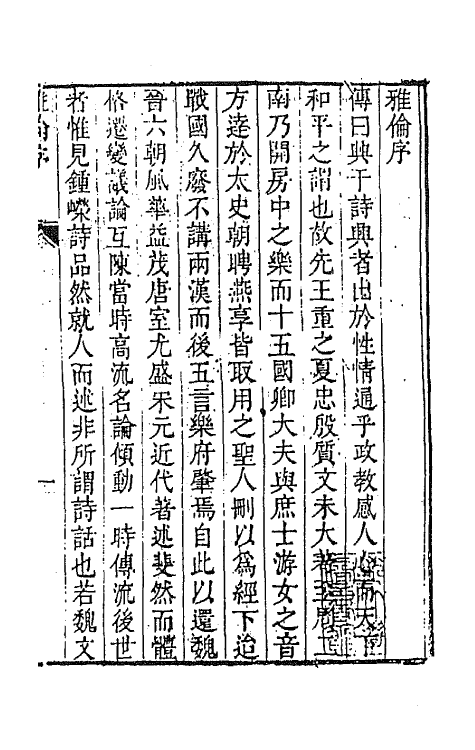 雅倫序
傳曰興于詩興者由於性情通乎政教感人心而天下
和平之謂也故先王重之夏忠殷質文未大著至周二
南乃開房中之樂而十五國卿大夫與庶士游女之音
方達於太史朝聘燕享皆取用之聖人刪以為經下迨
戰國久廢不講兩漢而後五言樂府肇焉自此以還魏
晉六朝風華益茂唐室尤盛宋元近代著述斐然而體
格遷變議論互陳當時高流名論傾動一時傳流後世
者惟見鍾嶸詩品然就人而述非所謂詩話也若魏文
雅倫序
一